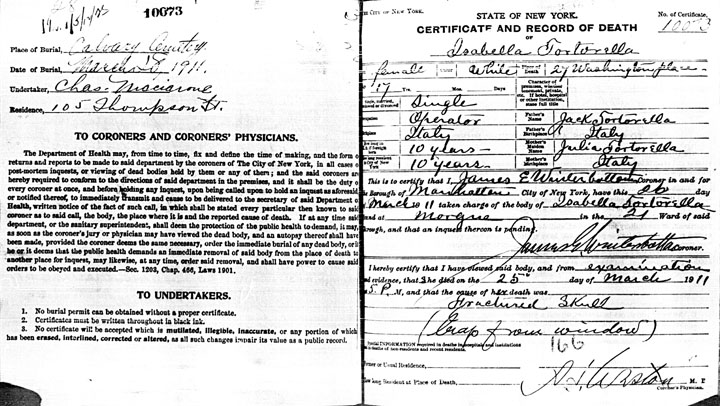 10073
Place of Burial, Calvary Cemetery
Date of Burial, March 1911.
Undertaker, Chas.
Residence, 105 Thompson St.
TO CORONERS AND CORONERS' PHYSICIANS.
The Department of Health may, from time to time, fix and define the time of making, and the form o
returns and reports to be made to said department by the coroners of The City of New York, in all cases o
post-mortem inquests, or viewing of dead bodies held by them or any of them; and the said coroners are
hereby required to conform to the directions of said department in the premises, and it shall be the duty o
every coroner at once, and before holding any inquest, upon being called upon to hold an inquest as aforesaid
or notified thereof, to immediately transmit and cause to be delivered to the secretary of said Department o
Health, written notice of the fact of such call, in which shall be stated every particular then known to said
coroner as to said call, the body, the place where it is and the reported cause of death. If at any time said
department, or the sanitary superintendent, shall deem the protection of the public health to demand, it may,
as soon as the coroner's jury or physician may have viewed the dead body, and an autopsy thereof shall have
been made, provided the coroner deems the same necessary, order the immediate burial of any dead body, or i
he or it deems that the public health demands an immediate removal of said body from the place of death to
another place for inquest, may likewise, at any time, order said removal, and shall have power to cause said
orders to be obeyed and executed.—Sec. 1203, Chap. 466, Laws 1901.
TO UNDERTAKERS.
1. No burial permit can be obtained without a proper certificate.
2. Certificates must be written throughout in black ink.
3. No certificate will be accepted which is mutilated, illegible, inaccurate, or any portion of which
has been erased, interlined, corrected or altered, as all such changes impair its value as a public record.
THE CITY OF NEW YORK.
STATE OF NEW YORK.
No. of Certificate,
10073
CERTIFICATE AND RECORD OF DEATH
OF
Isabella Tortorella
female White Place of Death 27 Washington place
17 Yrs. Mos. Days
Character of premises, whether tenement, private, etc. If hotel, hospital or other institution, name full title
Single
Operator Father's Name Jack Tortorella
Italy Father's Birthplace Italy
10 years Mother's Maiden Name Julia Tortorella
10 years Mother's Birthplace Italy
This is to certify that I, James E Winterbottom Coroner in and for
the Borough of Manhattan City of New York, have this 26 day
March 1911 taken charge of the body of Isabella Tortorella
found at Morgue in the 21 Ward of said
Borough, and that an inquest thereon is pending.
James E Winterbottom Coroner.
I hereby certify that I have viewed said body, and from examination
and evidence, that she died on the 25 day of March 1911
at 5. P. M, and that the cause of her death was
Fractured Skull
(leap from window)
166
Special INFORMATION required in deaths in hospitals and institutions
and in deaths of non-residents and recent residents.
Former or Usual Residence,
How long Resident at Place of Death,
M. D.
Coroner's Physician.